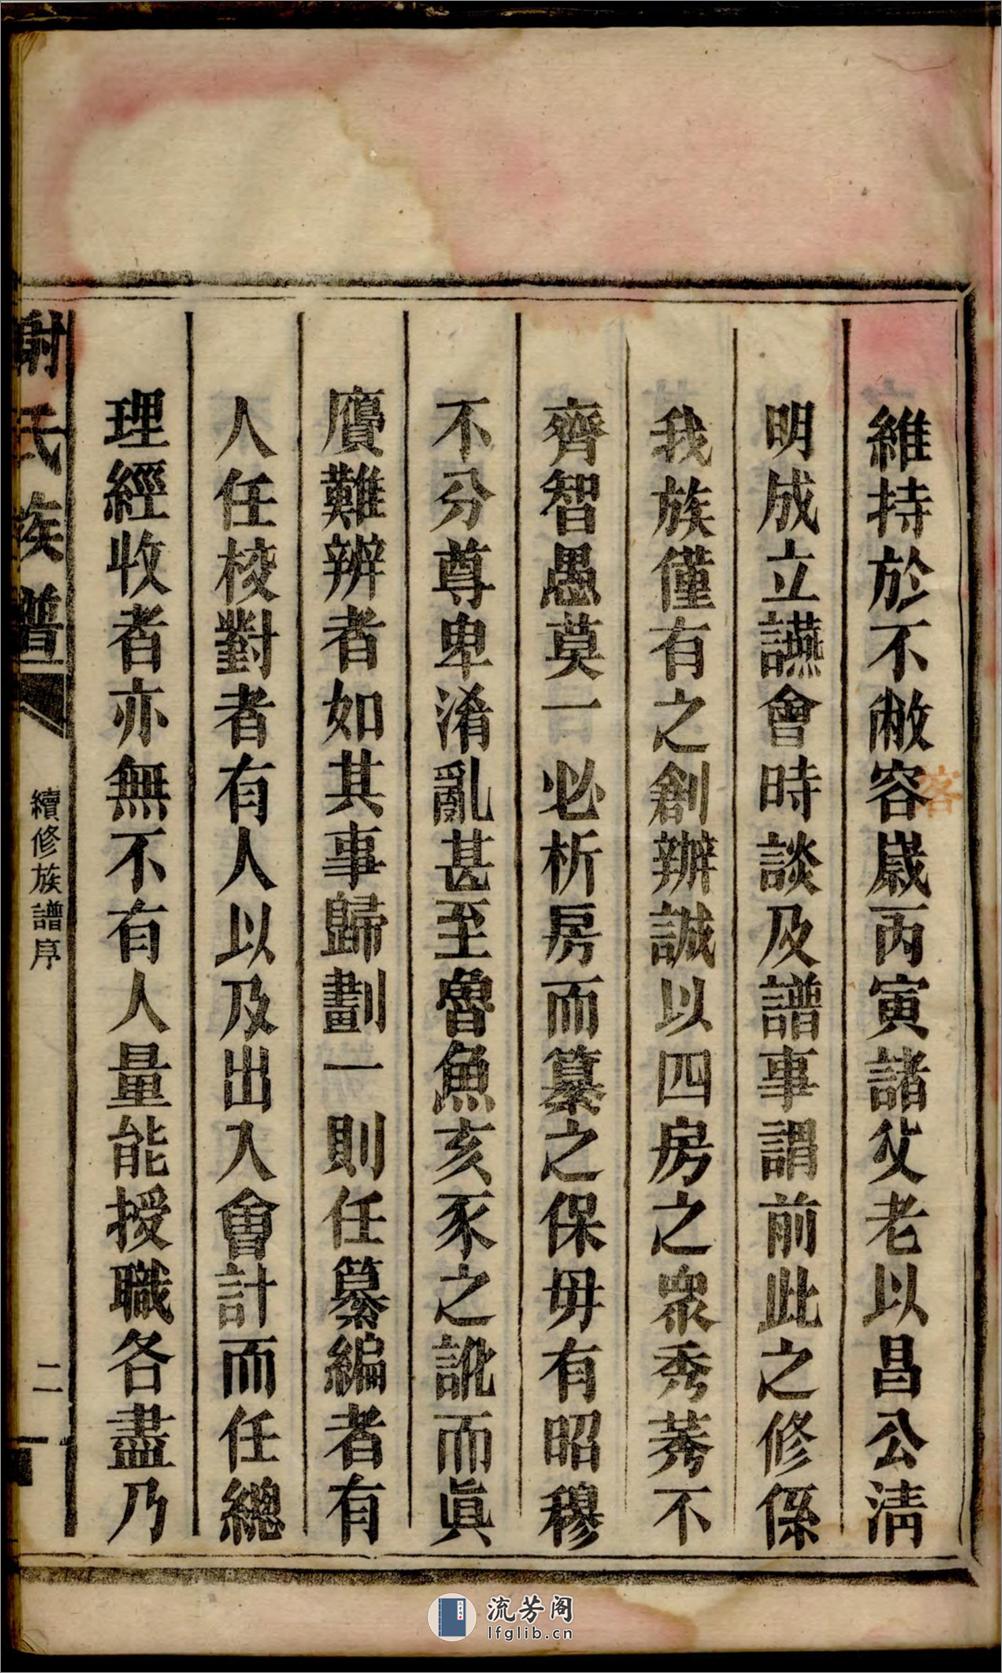 維持於不敝容歲丙寅諸父老以昌公清
客
明成立讌會時談及譜事謂前此之修係
我族僅有之創辦誠以四房之衆秀莠不
齊智愚莫一必析房而纂之保毋有昭穆
不分尊卑淆亂甚至魯魚亥豕之訛而眞
贋難辨者如其事歸劃一則任纂編者有
人任校對者有人以及出入會計而任總
理經收者亦無不有人量能授職各盡乃
謝氏族譜
續修族譜序
二
流芳阁
lfglib.cn